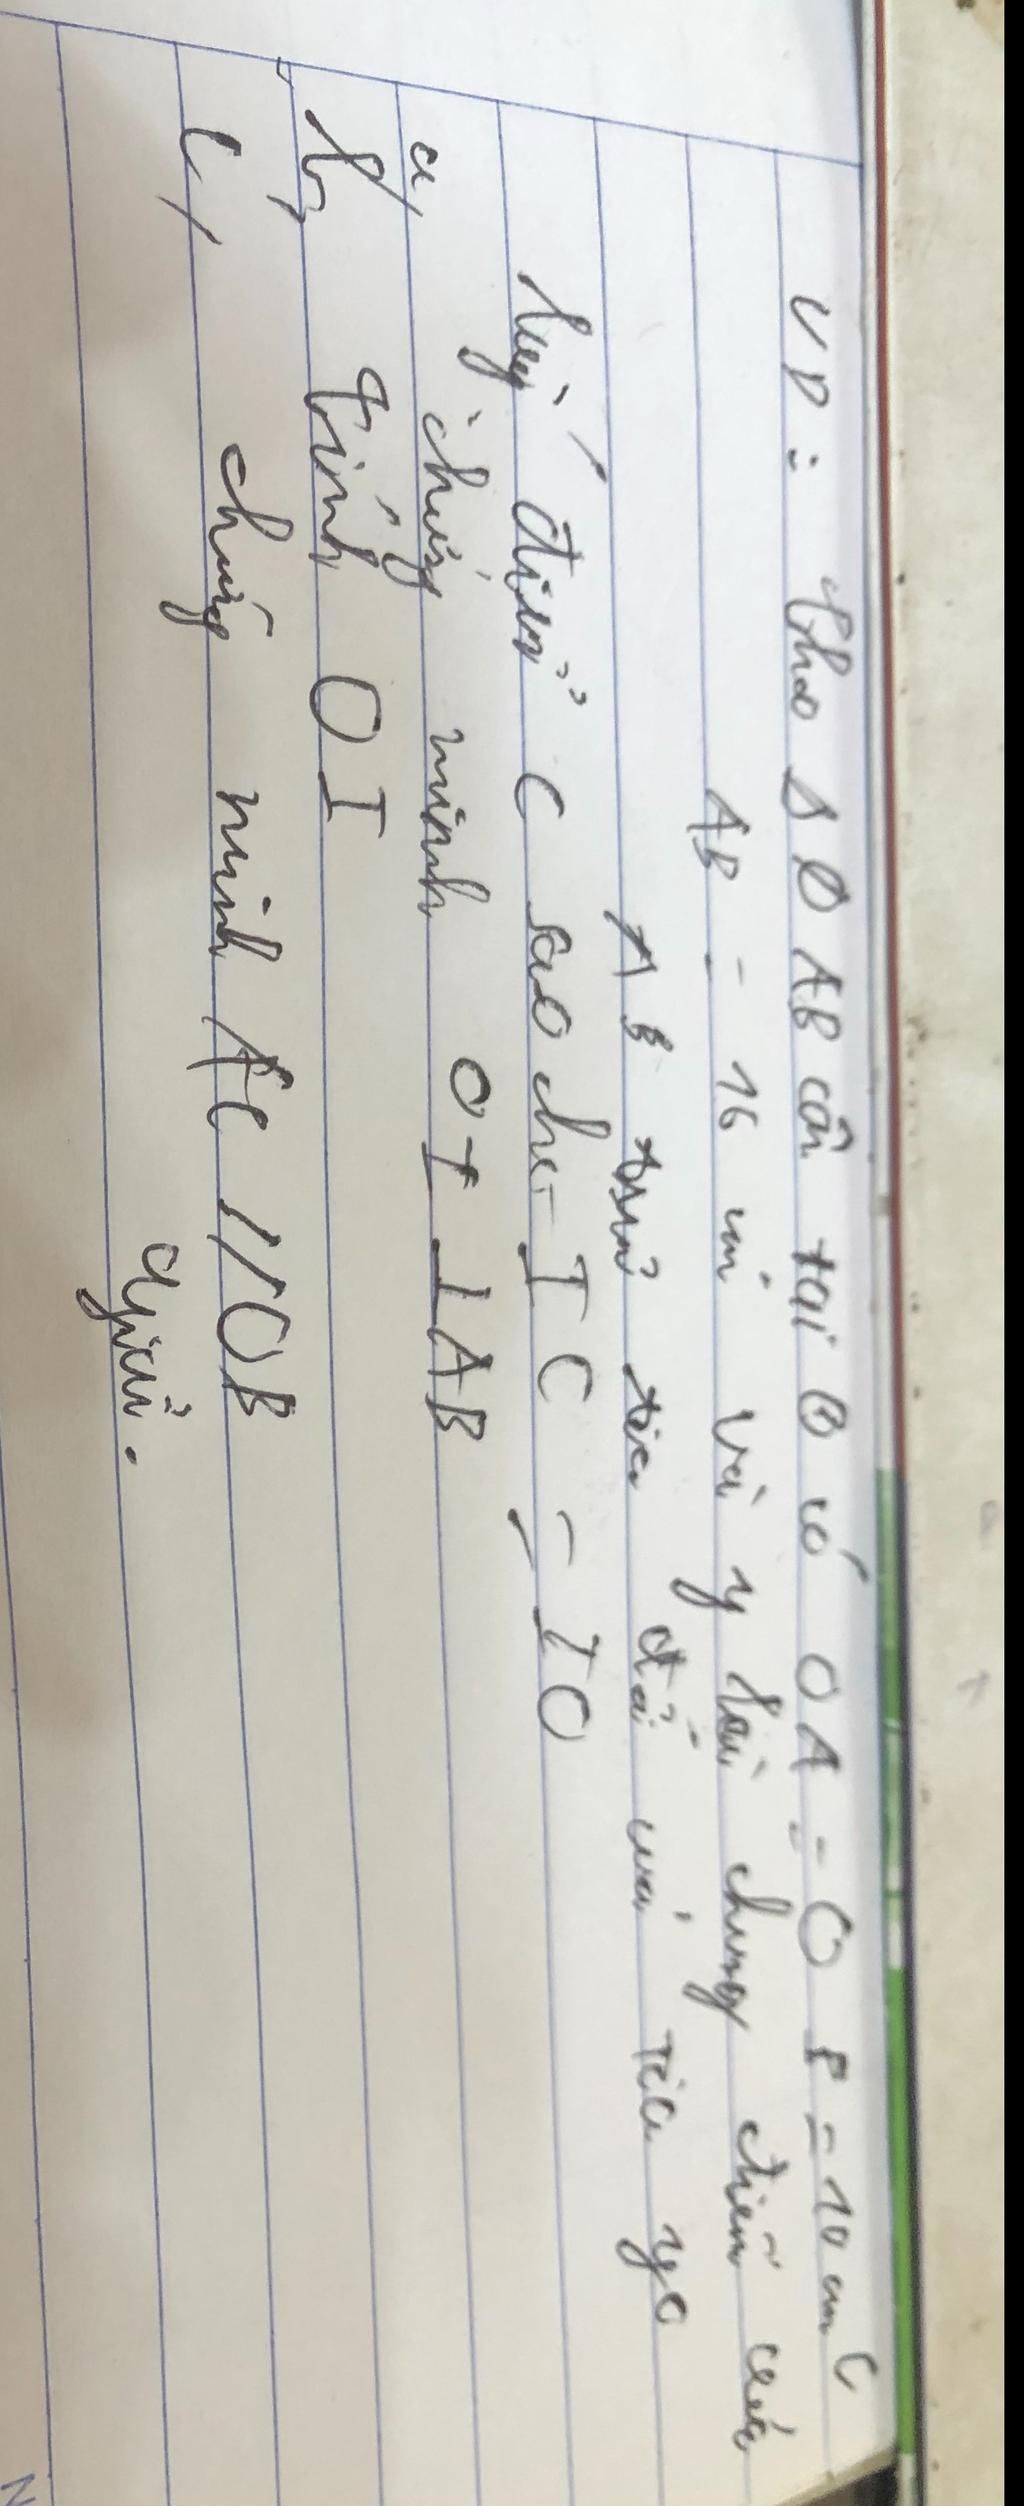 VD: Cho Δ OAB cân tại O có OA = OB = 10 cm
AB = 16 cm và y là chung điểm của
AB trên tia đối với tia yo
lấy điểm C sao cho IC = IO
a, chứng minh OI ⊥ AB
b, tính OI
c, chứng minh AC // OB
giải.